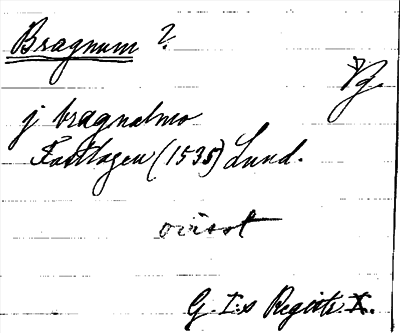 Bragnum ?
j bragnalmo
Fastlagen (1535) Lund.
ovisst
G. I:s Registr. X.